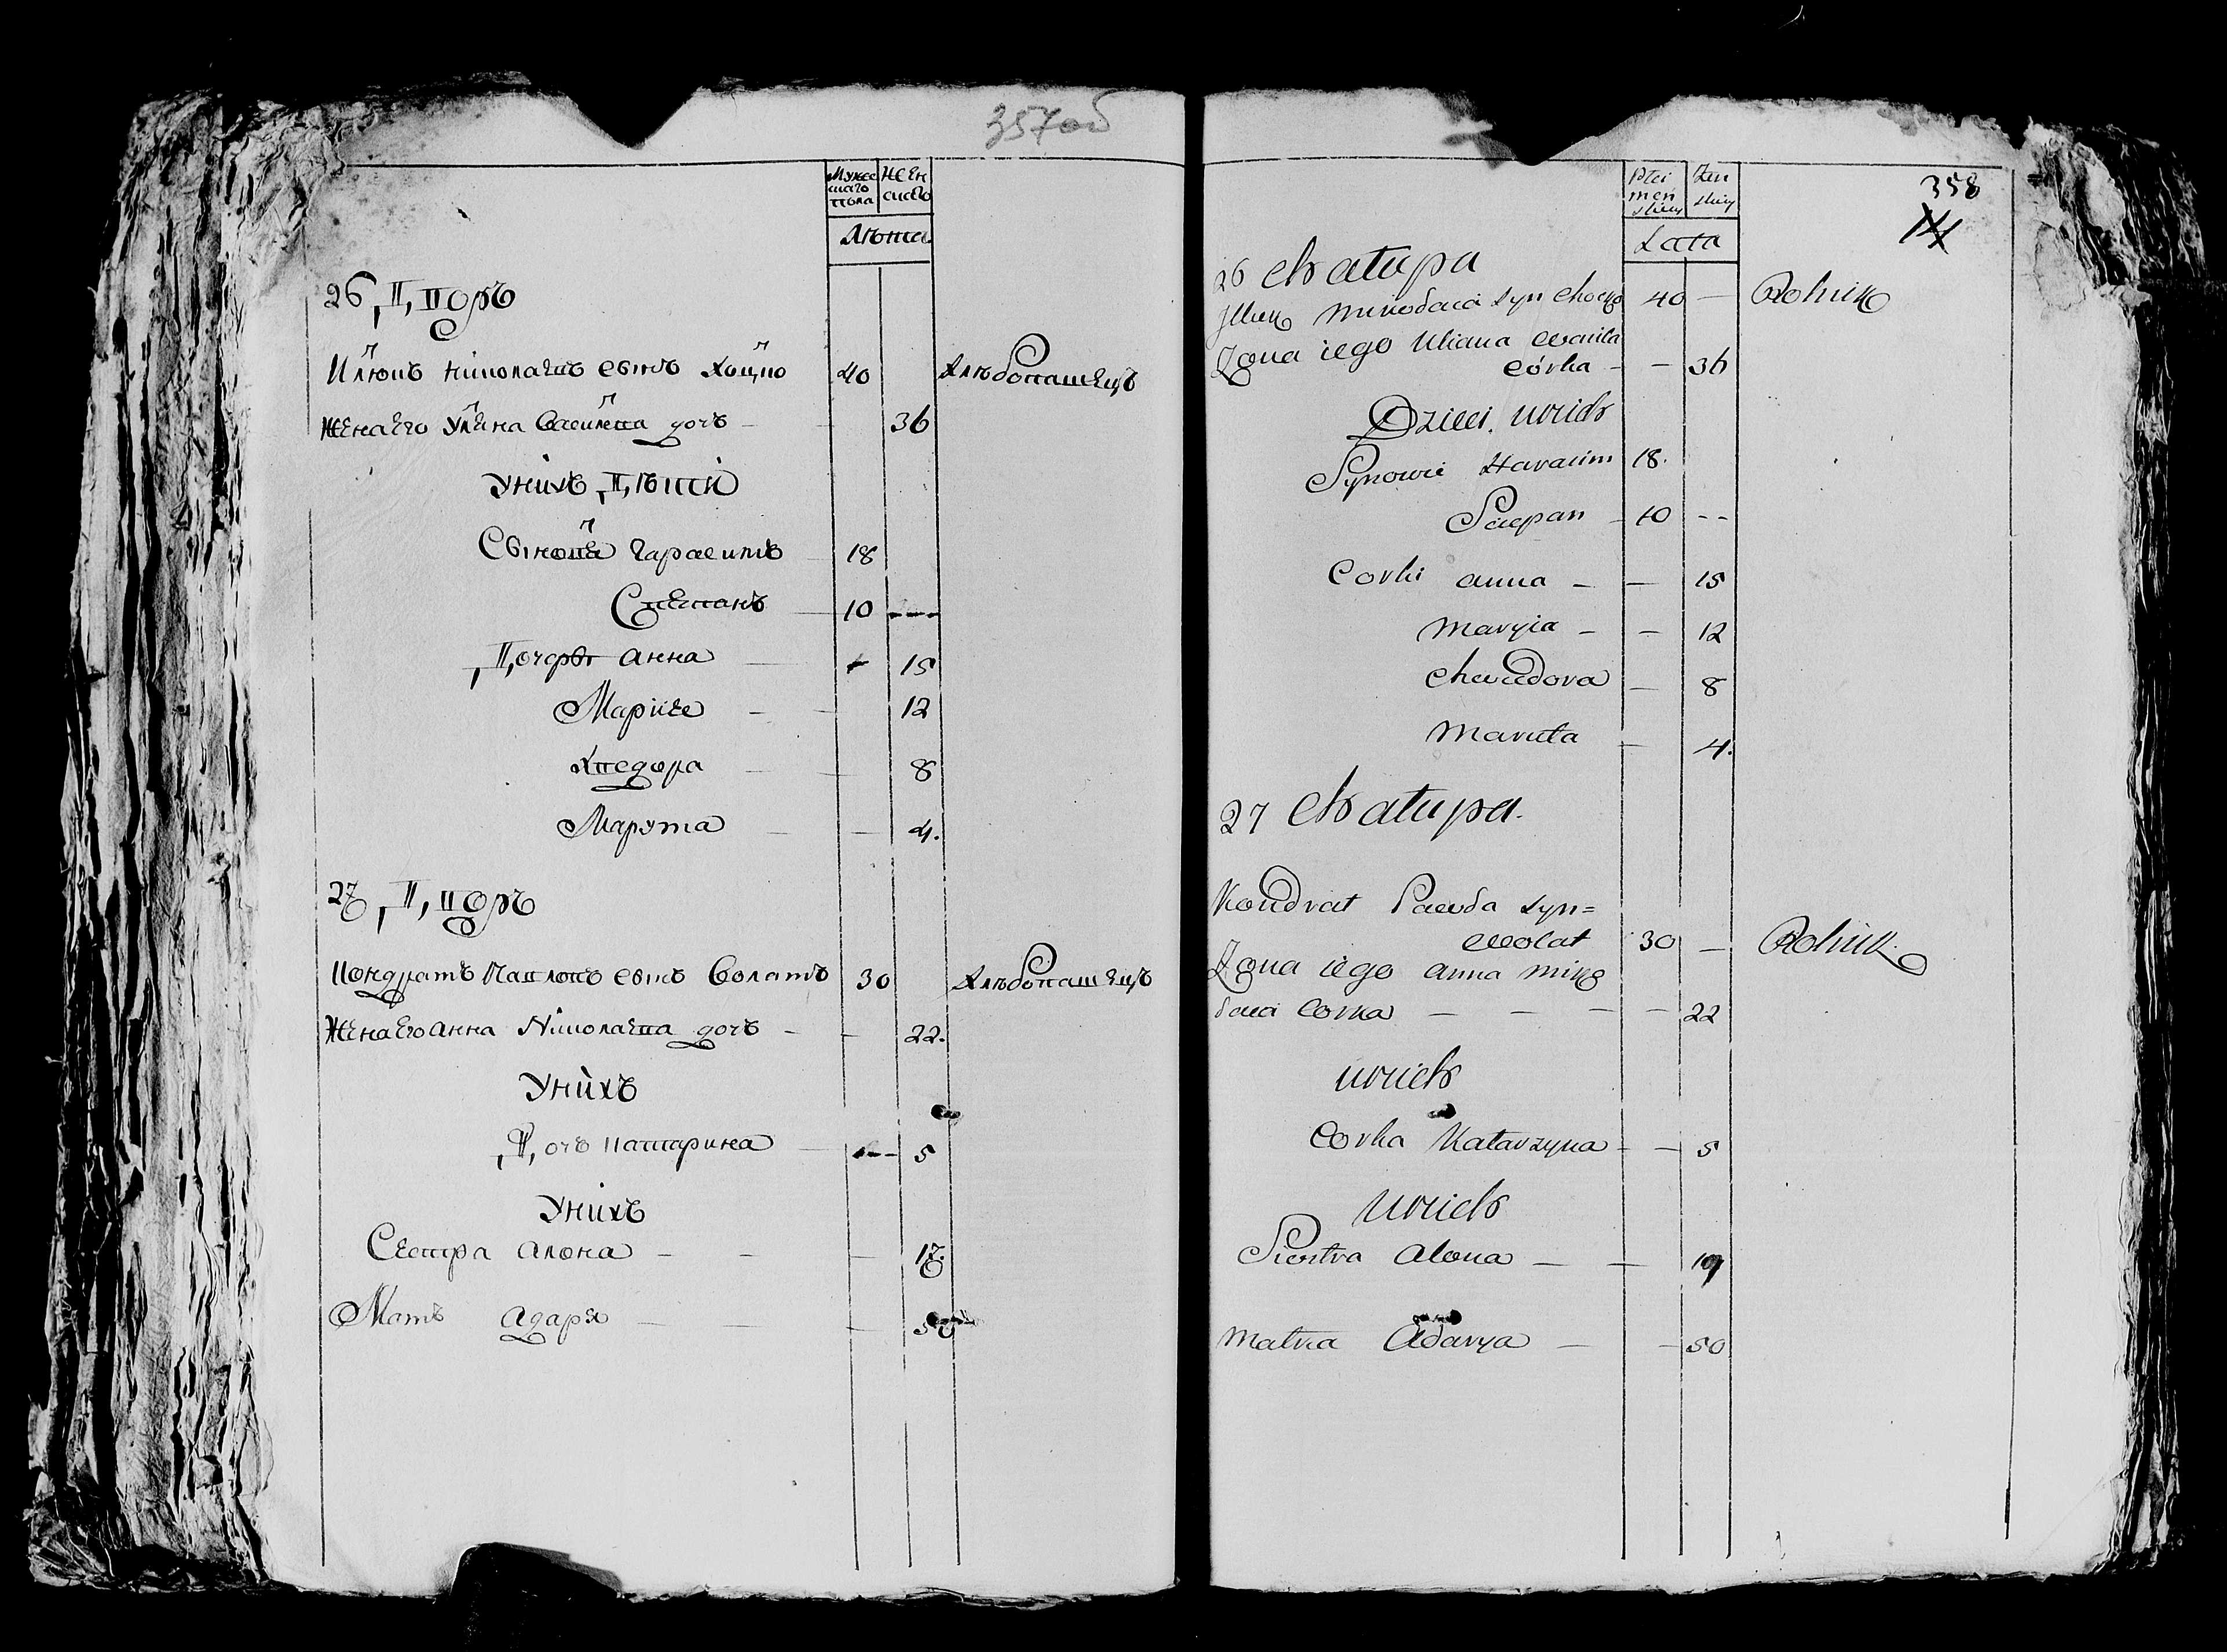 357об
Мужес
каго
пола
Жен
скаго
Лѣта
26, Дворъ
Илюкъ Николаевъ сынъ Хоцко 40 Хлѣбопашецъ
Жена его Ульяна Василева дочь - 36
У нихъ Дѣти
Сыновя Гарасимъ 18
Степанъ 10 ---
Дочери Анна 15
Мария - 12
Хведора - 8
Марута - 4.
27, Дворъ
Кондратъ Павловъ сынъ Волатъ 30 Хлѣбопашецъ
Жена его Анна Николаева дочь - 22.
У нихъ
Дочь Катарина - 5
У нихъ
Сестра Алона - - 17.
Мать Адаря - - 50
358
Płci
męń
skiey
Żeń
skiey
Lata
26 Chatupa
Illuk Mikodaia syn Chocko 40 - Rolnik
Żona iego Uliana Wasila
córka - - 36
Dzieci. u nich
Synowie Harasim 18.
Sciepan - 10 --
Corki Anna - - 15
Maryia - - 12
Chwiedora - 8
Maruta - 4.
27 Chatupa.
Kondrat Pawda syn=
Wolat 30 - Rolnik.
Żona iego Anna Miko
daia Corka - - - - 22
u nich
Corka Katarzyna - - 5
u nich
Siostra Alona - - 19
Matka Adarya - - 50